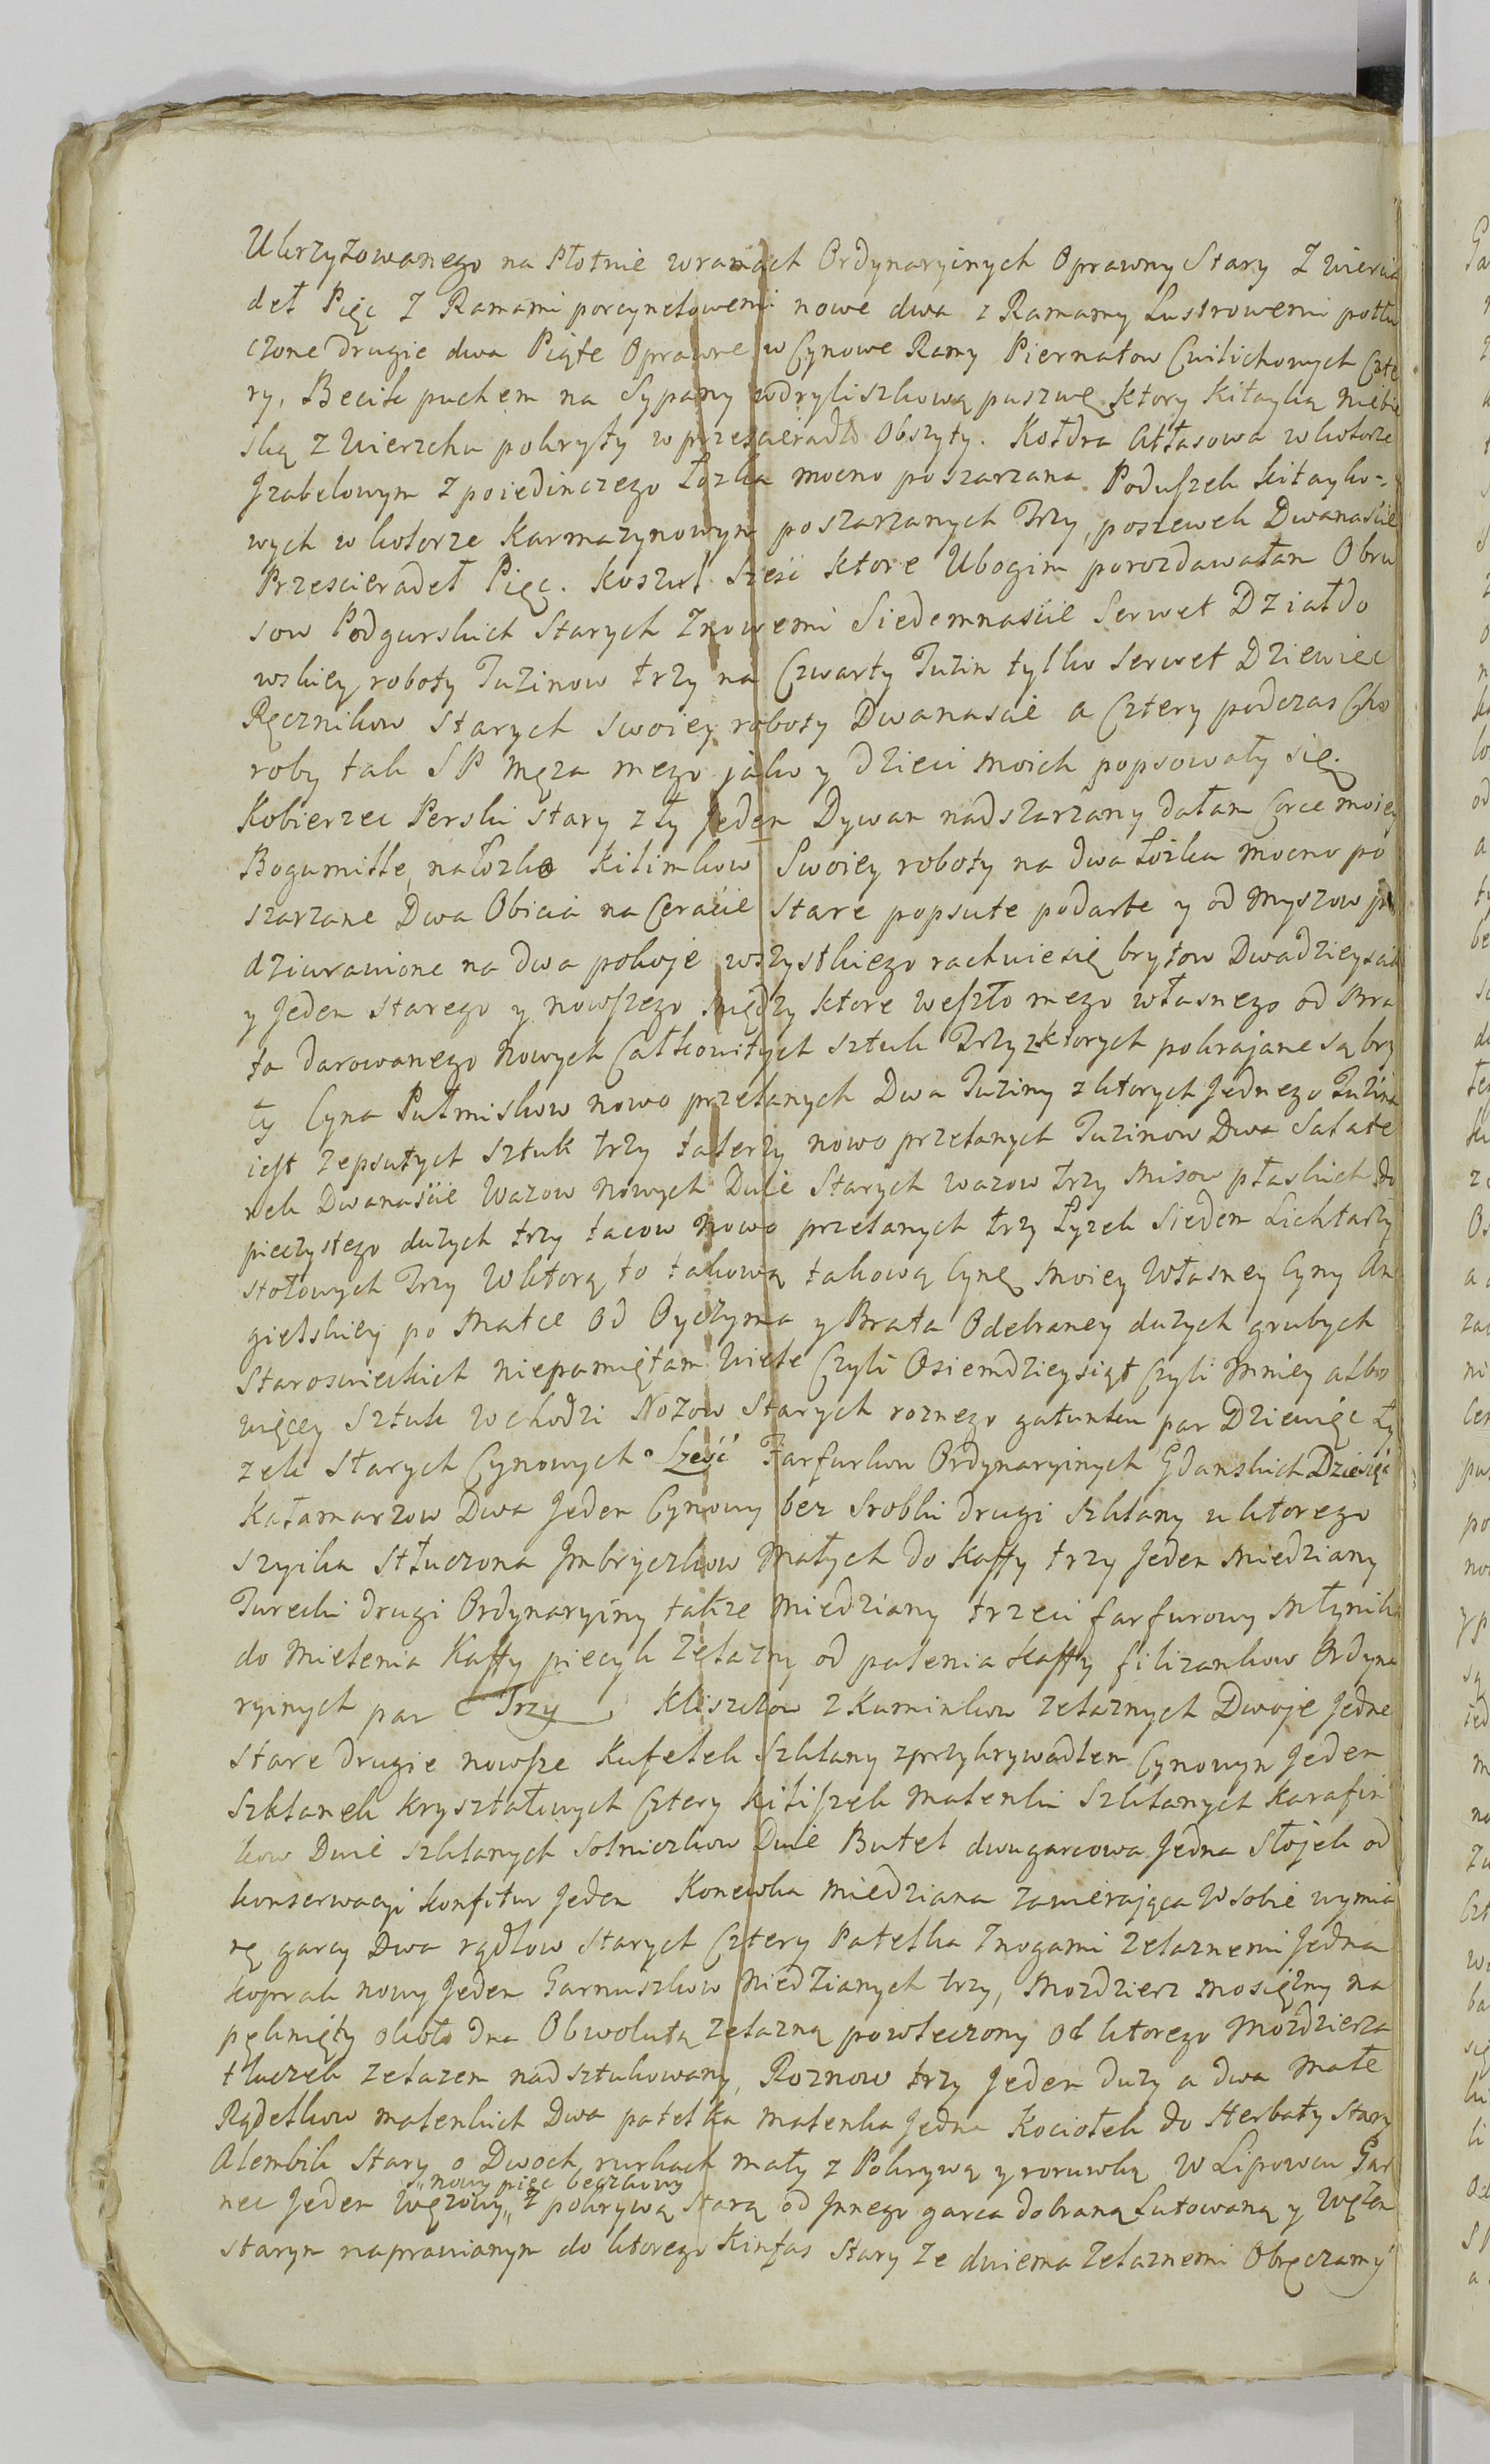 Ukrzyżowanego na Płotnie w ramach Ordynaryinych Oprawny Stary Zwiercia
deł Pięc z Ramami porcynelowemi nowe dwa z Ramamy Lustrowemi potłu
czone drugie dwa Piąte Oprawne w Cynowe Ramy Piernatow Cwilichowych Czte
ry, Becik puchem na Sypany w dryliszkową puszwę ktory kitayką niebie
ską z wierzchu pokryty w przescieradło Obszyty. Kołdra Atłasowa w kolorze
Jzabelowym z poiedinczego Łozka mocno poszarzana. Poduszek kitayko-
wych w kolorze karmazynowym poszarzanych Trzy, poszewek Dwanaście
Przescieradeł Pięc. koszul Sześć ktore Ubogim porozdawałam Obru
sow Podgurskich Starych Znowemi Siedemnaście Serwet Działdo
wskiey roboty Tuzinow trzy na Czwarty Tuzin tylko Serwet Dziewiec
Ręcznikow Starych Swoiey roboty Dwanascie a Cztery podczas Cho
roby tak S P męza mego jako y dzieci moich popsowały się.
Kobierzec Perski Stary zły jeden Dywan nadszarzany dałam Corce moiey
Bogumille, na Łozko kilimkow Swoiey roboty na dwa Łozka mocno po
szarzane Dwa Obicia na Ceracie Stare popsute podarte y od Myszow po
dziurawione na dwa pokoje wszystkiego rachuie się brytow Dwadzieyscia
y jeden starego y nowszego między ktore weszło mego własnego od Bra
ta darowanego Nowych Całkowitych sztuk Trzy z ktorych pokrajane są bry
ty Cyna Pułmiskow nowo przelanych Dwa Tuziny z ktorych Jednego Tuzina
iest zepsutych sztuk trzy talerzy nowo przelanych Tuzinow Dwa Salate
rek Dwanaście Wazow Nowych Dwie Starych wazow trzy Misow płaskich do
pieczystego duzych trzy tacow Nowo przelanych trzy Łyzek Siedem Lichtarzy
stołowych Trzy W ktorą to takową takową Cynę Moiey Własney Cyny An
gielskiey po Matce od Oyczyma y Brata Odebraney duzych grubych
Staroswieckich niepamiętam Wiele Czyli Osiemdzieysiąt Czyli Mniey albo
więcey Sztuk Wchodzi Nozow Starych roznego gatunku par Dziewięc Ły
zek Starych Cynowych Sześć Farfurkow Ordynaryinych Gdanskich Dziesięc
Kałamarzow Dwa Jeden Cynowy bez Srobki drugi Szklany u ktorego
Szyika Stłuczona Jmbryczkow Małych do Kaffy trzy Jeden Miedziany
Turecki drugi Ordynaryiny także Miedziany trzeci farfurowy Młynik
do Mielenia Kaffy piecyk Zelazny od palenia Kaffy filizankow Ordyna
ryinych par Trzy Kliszczow z Kuminkow zelaznych Dwoje Jedne
stare drugie nowsze Kufelek Szklany z przykrywadłem Cynowym Jeden
Szklanek kryształowych Cztery kiliszek Malenki Szklanych Karafin
kow Dwie szklanych Solniczkow Dwie Butel dwugarcowa Jedna Słojek od
konserwacyi konfitur Jeden Konewka miedziana zawierająca W sobie wymia
rę garcy Dwa rądlow Starych Cztery Patelka z nogami zelaznemi Jedna
koprak nowy Jeden Garnuszkow Miedzianych trzy, Mozdzierz mosiężny na
pęknięty około dna Obwolutą zelazną powleczony od ktorego Mozdzierza
tłuczek zelazem nadsztukowany, Roznow trzy Jeden duzy a dwa Małe
Rądelkow malenkich Dwa patelka malenka Jedna Kociołek do Herbaty Stary
Alembik Stary o Dwoch rurkach mały z Pokrywą y rorurką W Lipowcu Gar
nowy pięc beczkowy
nec Jeden Węzowy z pokrywą Starą od Jnnego garca dobraną Lutowaną y Węzem
starym naprawianym do ktorego Kinfas Stary ze dwiema zelaznemi Obręczamy